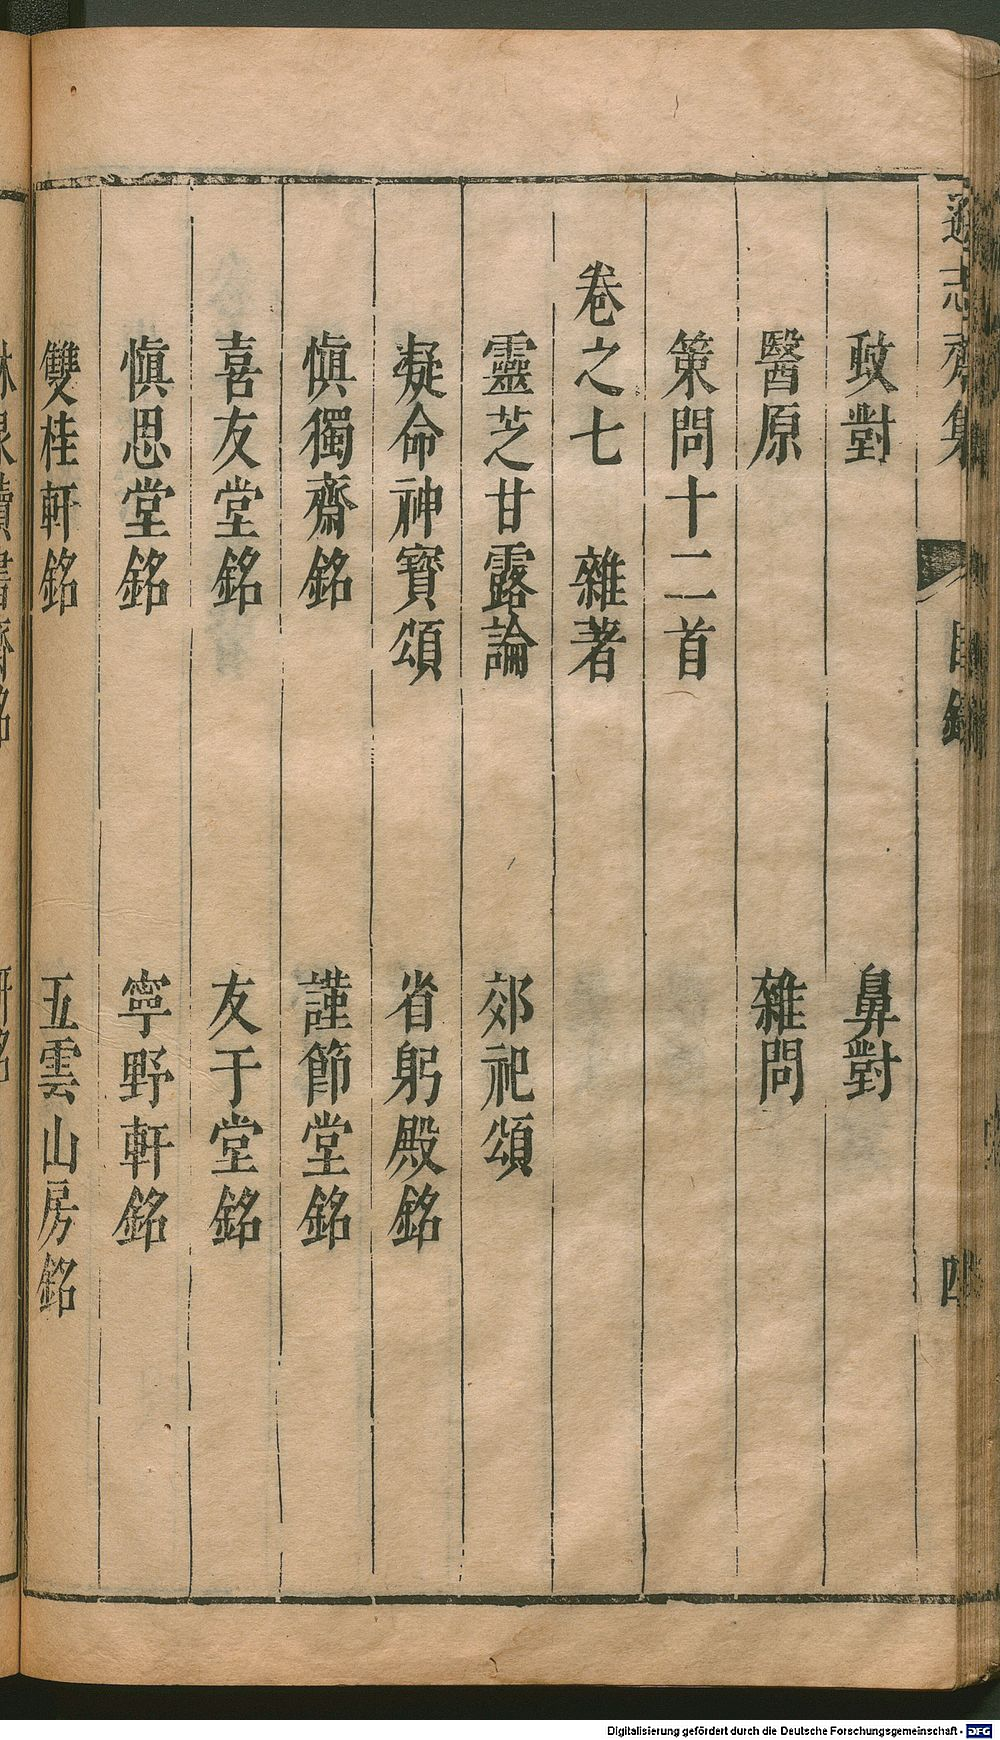 遜志齋集 目錄 四
蚊對 鼻對
醫原 雜問
策問十二首
卷之七 雜著
靈芝甘露論 郊祀頌
凝命神寶頌 省躬殿銘
愼獨齋銘 謹節堂銘
喜友堂銘 友于堂銘
愼思堂銘 寧野軒銘
雙桂軒銘 五雲山房銘
Digitalisierung gefördert durch die Deutsche Forschungsgemeinschaft - DFG